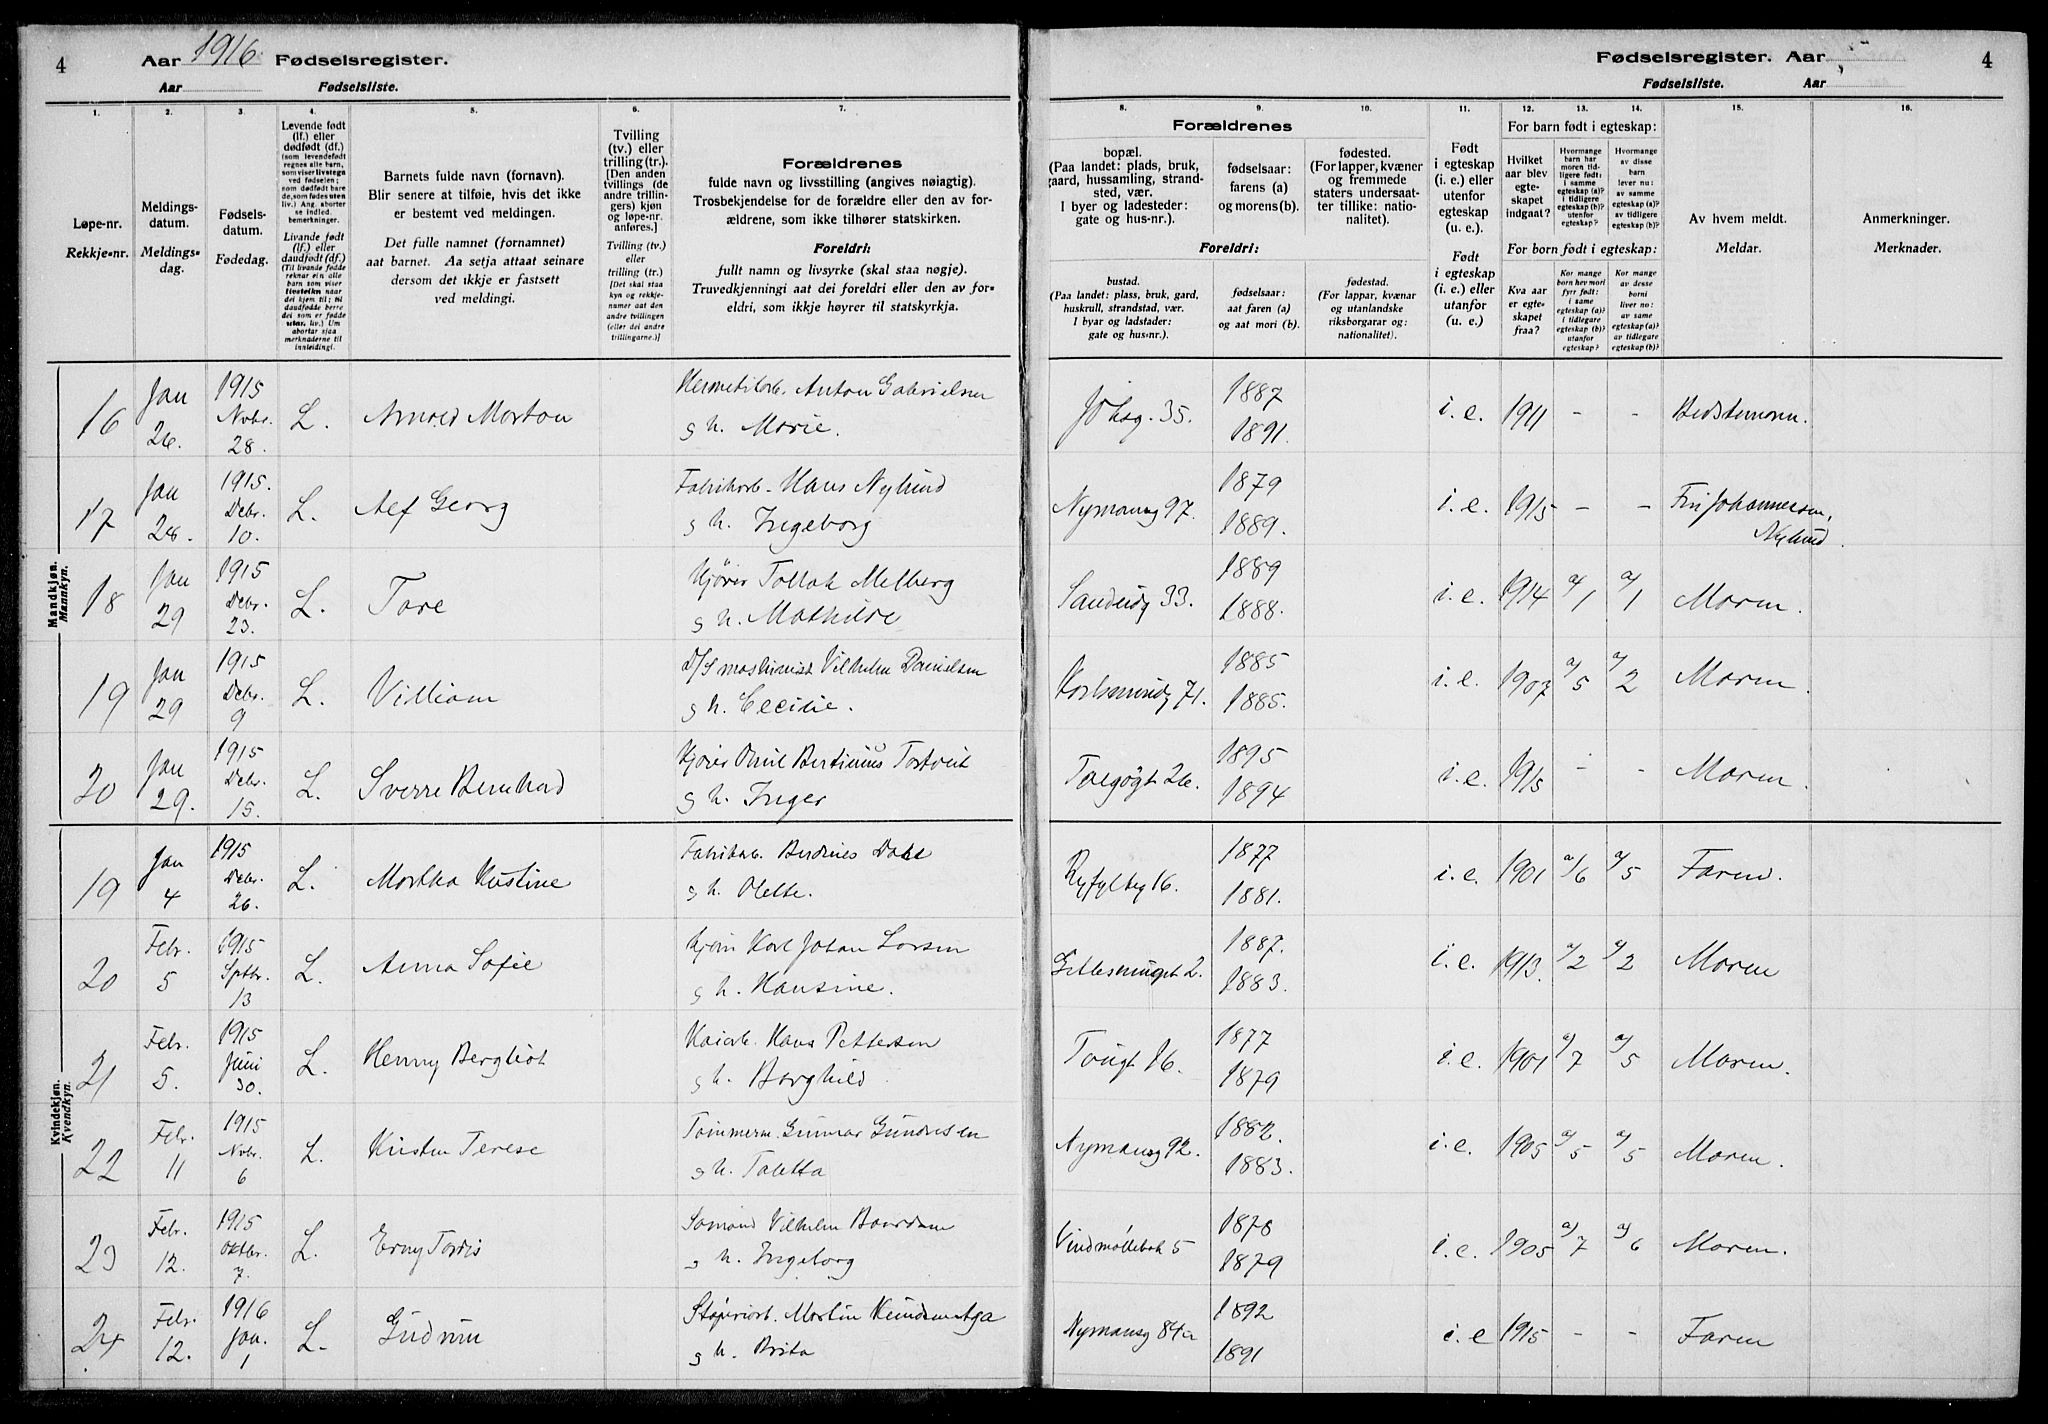 4 Aar 1916 Fødselsregister.
Aar Fødselsliste.
1. 2. 3. 4. 5. 6. 7.
Løpe-nr.
Rekkje-nr.
Meldings-
datum.
Meldings-
dag.
Fødsels-
datum.
Fødedag.
Levende født
(lf.) eller
dødfødt (df.)
Livande født
(lf.) eller
daudfødt (df.)
Barnets fulde navn (fornavn).
Blir senere at tilføie, hvis det ikke
er bestemt ved meldingen.
Det fulle namnet (fornamnet)
aat barnet. Aa setja attaat seinare
dersom det ikkje er fastsett
ved meldingi.
Tvilling
(tv.) eller
trilling (tr.).
[Den anden
tvillings (de
andre trillin-
gers) kjøn
og løpe-nr.
anføres.]
Tvilling (tv.)
eller
trilling (tr.)
[Det skal staa
kyn og rekkje-
numer aat den
andre tvillingen
(eller dei andre
trillingarne.)]
Forældrenes
fulde navn og livsstilling (angives nøiagtig).
Trosbekjendelse for de forældre eller den av for-
ældrene, som ikke tilhører statskirken.
Foreldri:
fullt namn og livsyrke (skal staa nøgje).
Truvedkjenningi aat dei foreldri eller den av for-
eldri, som ikkje høyrer til statskyrkja.
Mandkjøn.
Mannkyn.
16 Jan 26. 1915 Nvbr. 28. L. Arnold Morton Hermetikarb. Anton Gabrielsen
g h. Marie.
17 Jan 28. 1915. Debr. 10. L. Alf Georg Fabrikarb. Hans Nylund
g h. Ingeborg
18 Jan 29 1915 Debr. 23. L. Tore Kjører Tollak Melberg
g h. Mathilde
19 Jan 29 1915 Debr. 9 L. William D/S maskinist Vilhelm Danielsen
g h. Cecilie.
20 Jan 29. 1915 Debr. 15. L. Sverre Bernhard Kjører Omil Bertinius Tortveit
g h. Inger
Kvindekjøn.
Kvendkyn.
19 Jan 4 1915 Debr. 26. L. Martha Kristine Fabrikarb. Berdines Dahl
g h. Olette.
20 Febr. 5 1915 Sptbr. 13 L. Anna Sofie Kjører Karl Johan Larsen
g h. Hansine.
21 Febr. 5. 1915 Juni 30. L. Henny Bergliot Kaiarb. Hans Pettersen
g h. Borghild.
22 Febr. 11 1915 Nvbr. 6 L. Kirsten Terese Tømmerm. Gunnar Gundersen
g h. Taletta
23 Febr. 12. 1915 Oktbr. 7. L. Erny Tordis Sømand Vilhelm Baardsen
g h. Ingeborg
24 Febr. 12. 1916 Jan. 1 L. Gudrun Støperiarb. Martin Knudsen Aga
g h. Brita
Fødselsregister. Aar 4
Fødselsliste. Aar
8. 9. 10. 11. 12. 13. 14. 15. 16.
Forældrenes
bopæl.
(Paa landet: plads, bruk,
gaard, hussamling, strand-
sted, vær.
I byer og ladesteder:
gate og hus-nr.).
fødselsaar:
farens (a)
og morens (b).
fødested.
(For lapper, kvæner
og fremmede
staters undersaat-
ter tillike: natio-
nalitet).
Foreldri:
bustad.
(Paa landet: plass, bruk, gard,
huskrull, strandstad, vær.
I byar og ladstader:
gate og hus-nr.).
fødselsaar:
aat faren (a)
og aat mori (b).
fødestad.
(For lappar, kvænar
og utanlandske
riksborgarar og:
nationalitet).
Født
i egteskap
(i. e.) eller
utenfor
egteskap
(u. e.).
Født
i egteskap
(i. e.) eller
utanfor
(u. e.)
For barn født i egteskap:
Hvilket
aar blev
egte-
skapet
indgaat?
Hvormange
barn har
moren tid-
ligere født:
i samme
egteskap (a)?
utenfor
egteskap (b)?
Hvormange
av disse
barn
lever nu:
av samme
egteskap (a)?
av tidligere
egteskap (b)?
For born født i egteskap:
Kva aar
er egte-
skapet
fraa?
Av hvem meldt.
Meldar.
Anmerkninger.
Merknader.
35. 1887 1891. i. e. 1911 - - Bedstemoren.
Nymansg 97. 1879 1889. i. e. 1915 - - Fru Johannessen, Nylund.
33. 1889 1888. i. e. 1914 a/1 a/1 Moren.
71. 1885 1885. i. e. 1907 a/5 a/2 Moren.
26. 1895 1894 i. e. 1915 - - Moren.
Ryfylkeg 16. 1877 1881. i. e. 1901 a/6 a/5 Faren.
2. 1887. 1883. i. e. 1913. a/2 a/2 Moren
16. 1877 1879 i. e. 1901 a/7 a/5 Moren.
Nymansg 92. 1882. 1883. i. e. 1905 a/5 a/5 Moren.
Vindmøllebak 5 1878 1879 i. e. 1905 a/7 a/6 Moren.
Nymansg 84a 1892 1891 i. e 1915 - - Faren